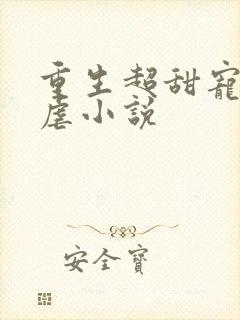 重生超甜寵
虐小說
安全寶